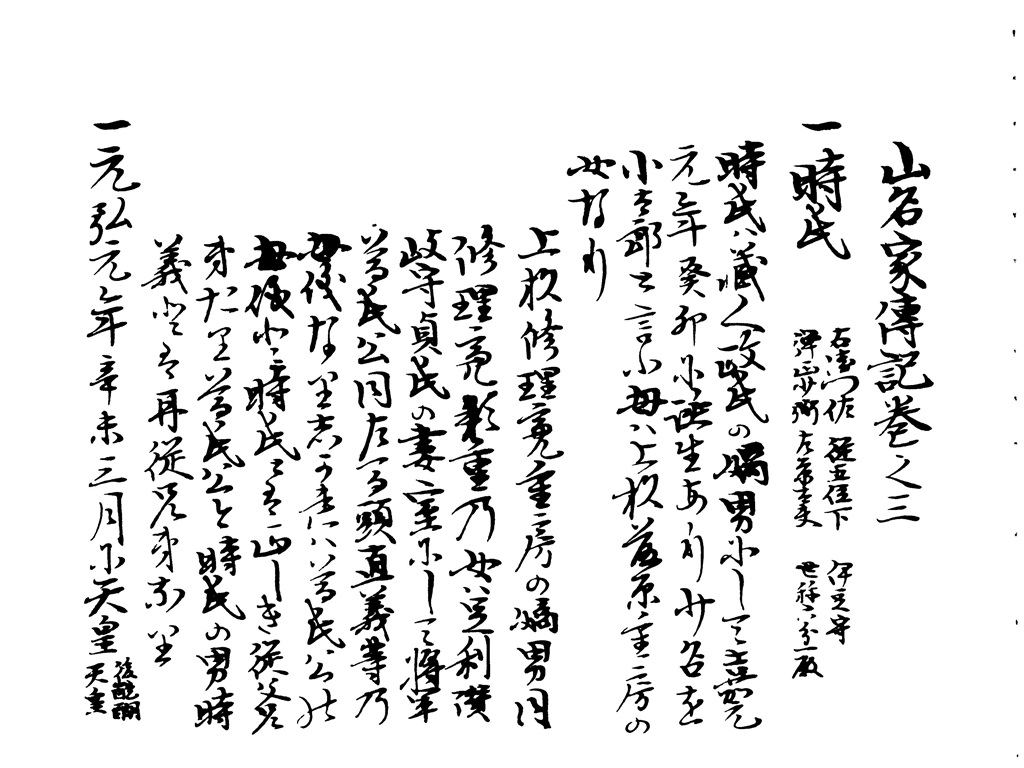 山名家傳記巻之三
一時氏
右衛門佐 従五位下 伊豆守
弾正少弼 左京大夫 世称六分一殿
時氏ハ蔵人政氏の嫡男にして嘉元
元年癸卯に誕生あり少名を
小太郎と言ふ母ハ上杦藤原重房の
女なり
上杦修理亮重房の嫡男同
修理亮頼重乃女ハ足利讃
岐守貞氏の妻室にして将軍
尊氏公同左馬頭直義等乃
母儀なり志可れハ尊氏公の
母儀と時氏とは正しき従父兄
弟たり尊氏公と時氏の男時
義とは再従兄弟なり
一元弘元年辛未三月に天皇
後醍醐
天皇